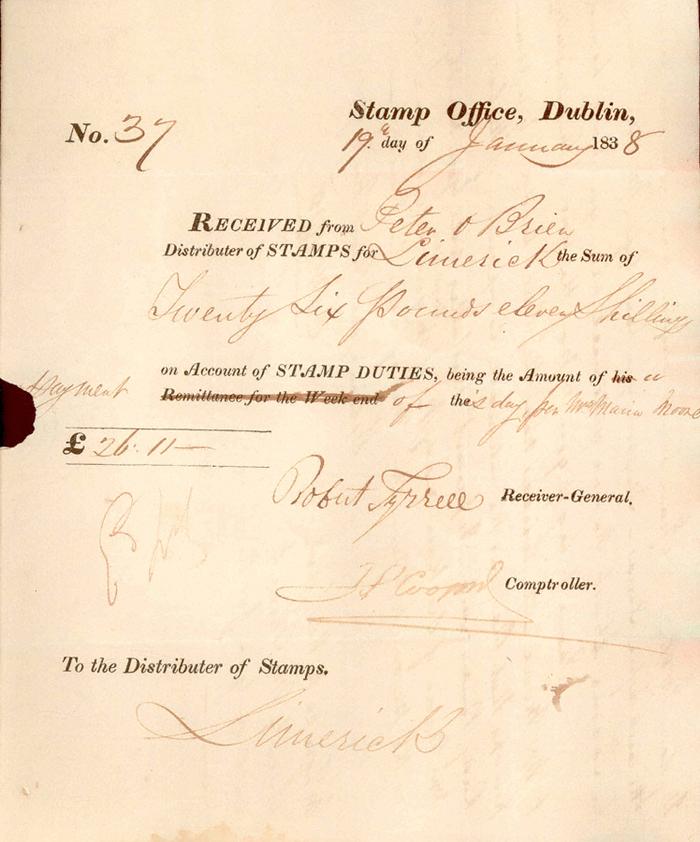 Stamp Office, Dublin,
No. 37
19th day of January 1838
RECEIVED from Peter O Brien
Distributer of STAMPS for Limerick the Sum of
Twenty Six Pounds eleven Shillings
on Account of STAMP DUTIES, being the Amount of his a
payment Remittance for the Week end of the's day, per Mrs Maria Moore
£ 26.11—
Robert Tyrrell Receiver-General.
Comptroller.
To the Distributer of Stamps.
Limerick